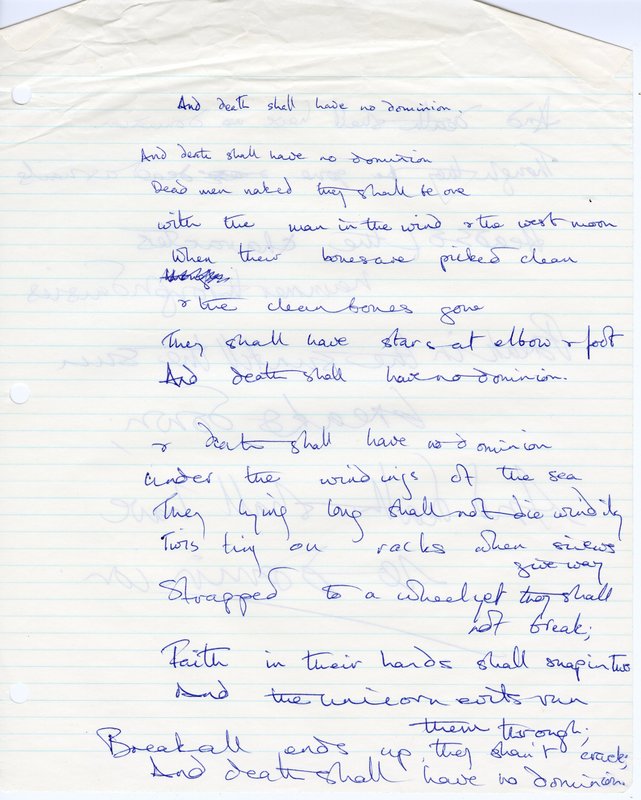 And death shall have no dominion.
And death shall have no dominion
Dead men naked they shall be one
with the man in the wind & the west moon
When their bones are picked clean
& the clean bones gone
They shall have stars at elbow & foot
And death shall have no dominion.
& death shall have no dominion
under the windings of the sea
They lying long shall not die windily
Twisting on racks when sinews
give way
Strapped to a wheel yet they shall
not break;
Faith in their hands shall snap in two
And the unicorn evils run
them through;
Break all ends up they shan't crack;
And death shall have no dominion.